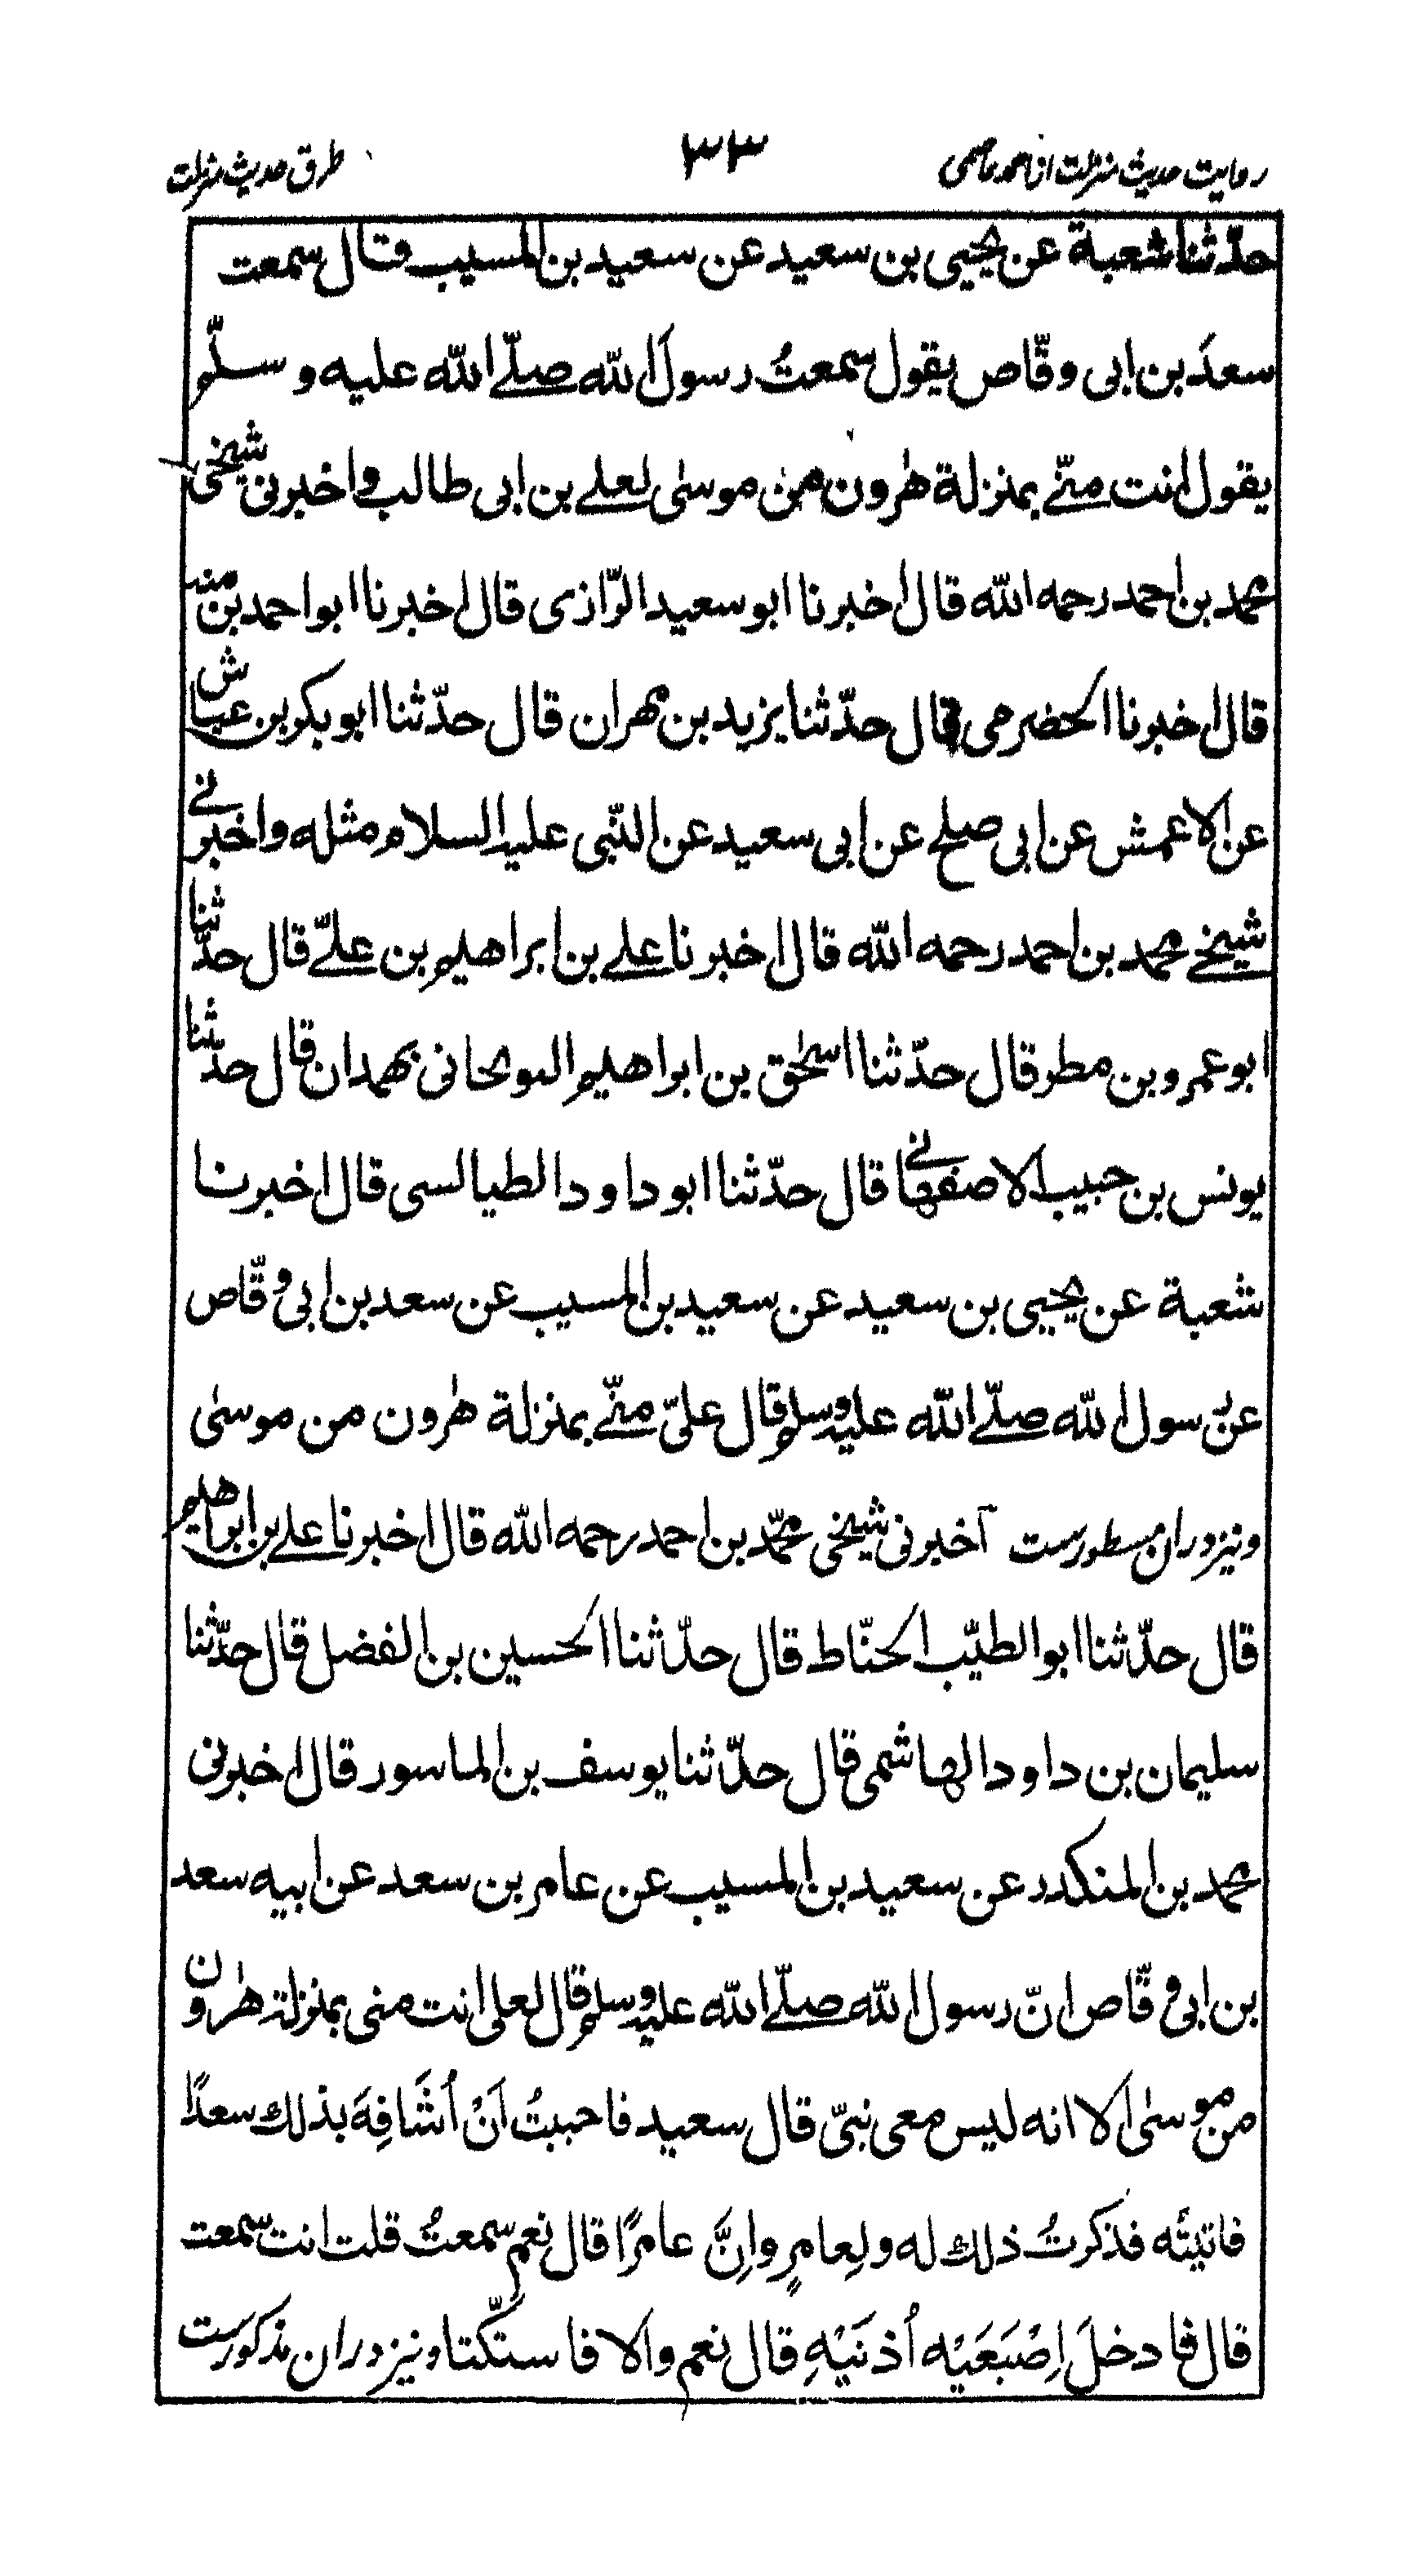 روایت حدیث منزلت از احمد عاصمی ۳۳ طرق حدیث منزلت
حدّثنا شعبة عن يحيى بن سعيد عن سعيد بن المسيب قال سمعت
سعدَ بن ابى وقّاص يقول سمعتُ رسول الله صلّے الله عليه و سلّم
يقول انت منّے بمنزلة هٰرون من موسٰى لعلے بن ابى طالب واخبرنى شيخى
محمد بن احمد رحمه الله قال اخبرنا ابو سعيد الرّازى قال اخبرنا ابو احمد بن منه
قال اخبرنا الحضرمى قال حدّثنا يزيد بن مهران قال حدّثنا ابو بكر بن عياش
عن الاعمش عن ابى صلح عن ابى سعيد عن النّبى عليه السلام مثله واخبرنے
شيخے محمد بن احمد رحمه الله قال اخبرنا علے بن ابراهيم بن علےّ قال حدّثنا
ابو عمرو بن مطر قال حدّثنا اسحٰق بن ابراهيم البوىحانى بهمدان قال حدّثنا
يونس بن حبيب الاصفهانے قال حدّثنا ابو داود الطيالسى قال اخبرنا
شعبة عن يحيى بن سعيد عن سعيد بن المسيب عن سعد بن ابى وقّاص
عن رسول الله صلّے الله عليه وسلم قال علىّ منّے بمنزلة هٰرون من موسىٰ
ونیز دران مسطورست آخبرنى شيخى محمّد بن احمد رحمه الله قال اخبرنا علے بن ابراهيم
قال حدّثنا ابو الطيّب الحنّاط قال حدّثنا الحسين بن الفضل قال حدّثنا
سليمان بن داود الهاشمى قال حدّثنا يوسف بن الماسور قال اخبرنى
محمد بن المنكدر عن سعيد بن المسيب عن عامر بن سعد عن ابيه سعد
بن ابى وقّاص انّ رسول الله صلّے الله عليه وسلم قال لعلى انت منى بمنزلة هٰرون
من موسىٰ الا انه ليس معى نبىّ قال سعيد فاحببتُ اَنْ اُشَافِهَ بذلك سعدًا
فاتيتَه فذكرتُ ذلك له ولِعامرٍ واِنَّ عامرًا قال نعم سمعتُ قلت انت سمعت
قال فادخلَ اِصْبَعَيْه اُذنَيْهِ قال نعم والا فاستكّتا ونیز دران مذکورست